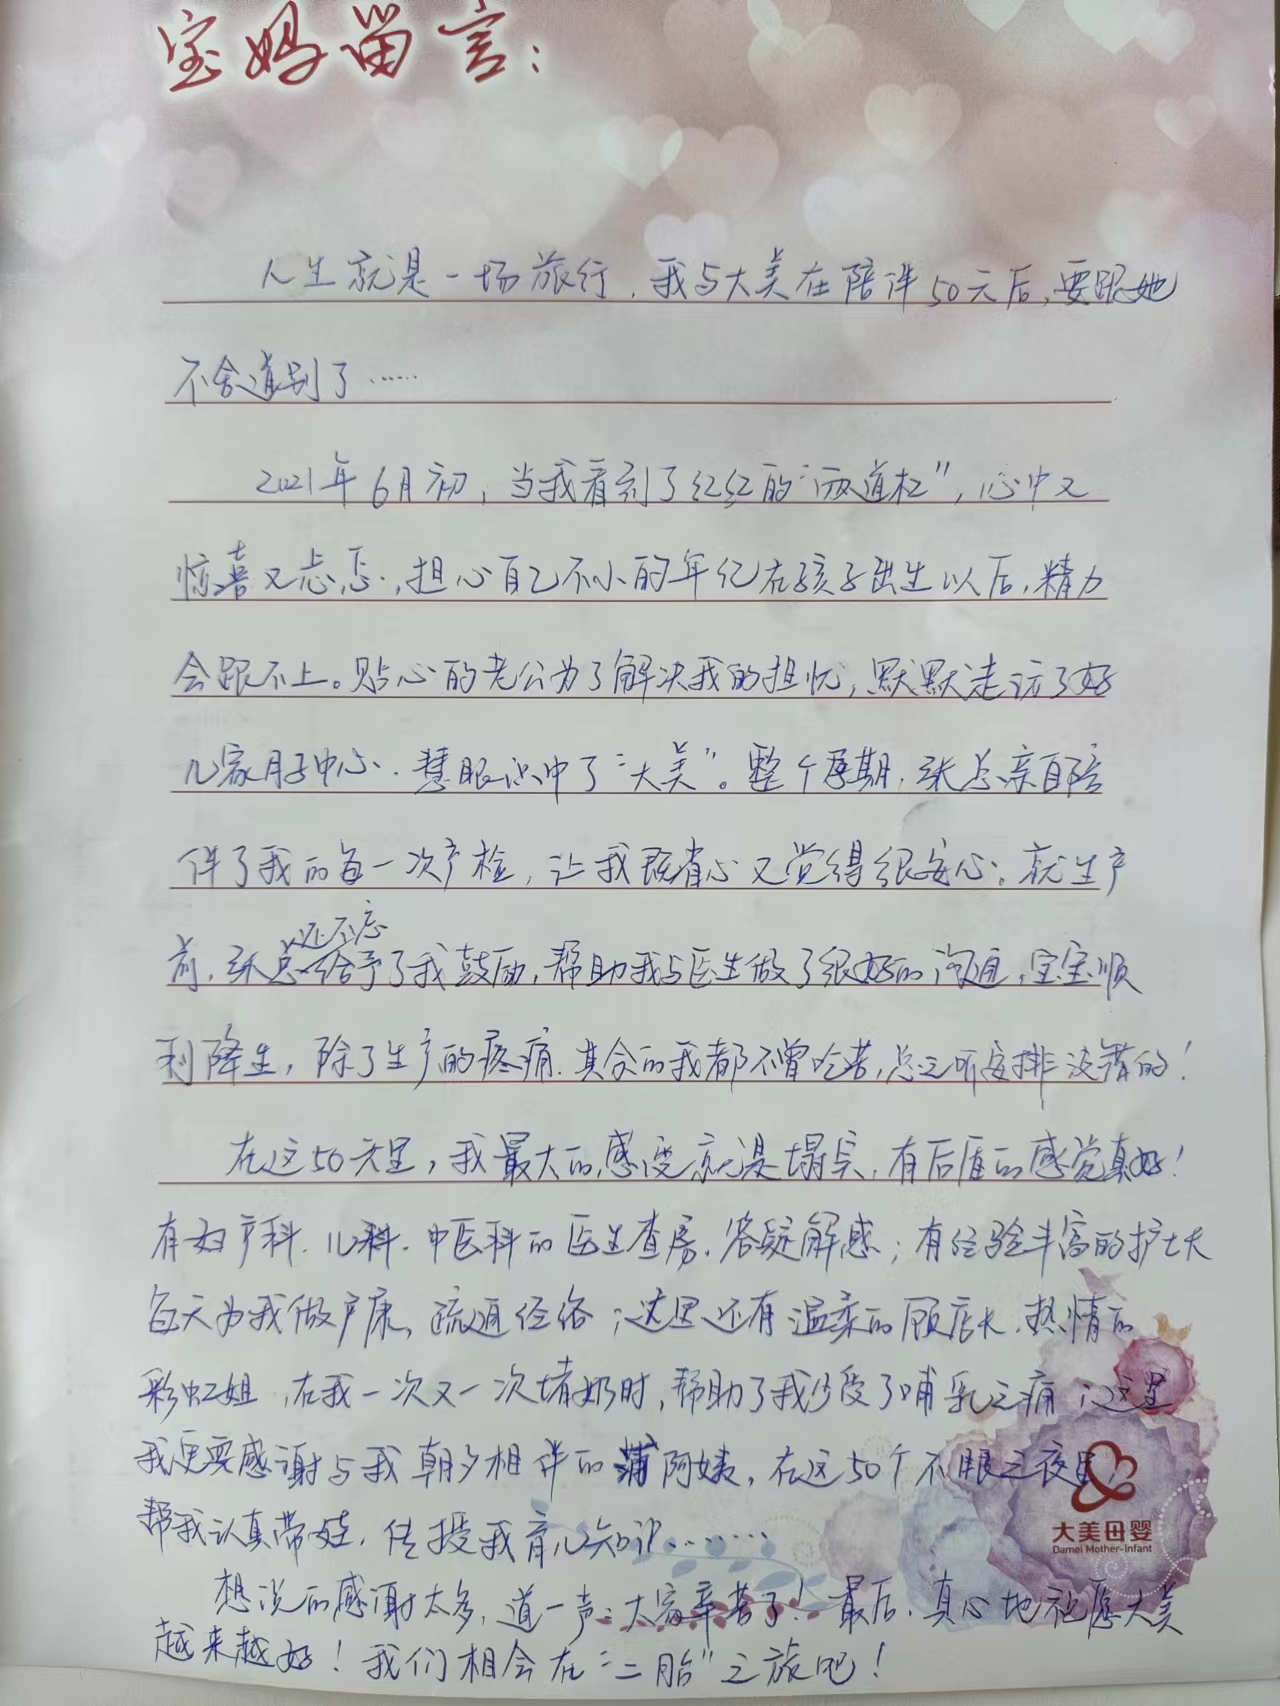 宝妈留言：
人生就是一场旅行，我与大美在陪伴50天后，要跟她
不舍道别了……
2021年6月初，当我看到了红红的“两道杠”，心中又
惊喜又忐忑，担心自己不小的年纪在孩子出生以后，精力
会跟不上。贴心的老公为了解决我的担忧，默默走访了好
几家月子中心，慧眼识中了“大美”。整个孕期，张总亲自陪
伴了我的每一次产检，让我既省心又觉得很安心；就生产
前，张总还不忘给予了我鼓励，帮助我与医生做了很好的沟通，宝宝顺
利降生，除了生产的疼痛，其余的我都不曾吃苦，总之听安排没错的！
在这50天里，我最大的感受就是塌实，有后盾的感觉真好！
有妇产科、儿科、中医科的医生查房，答疑解惑；有经验丰富的护士长
每天为我做产康、疏通经络；这里还有温柔的顾店长，热情的
彩虹姐，在我一次又一次堵奶时，帮助了我少受了哺乳之痛；这里
我更要感谢与我朝夕相伴的蒲阿姨，在这50个不眠之夜里，
帮我认真带娃，传授我育儿知识………
想说的感谢太多，道一声：大家辛苦了！最后，真心地祝愿大美
越来越好！我们相会在“二胎”之旅吧！
大美母婴
Damei Mother-Infant